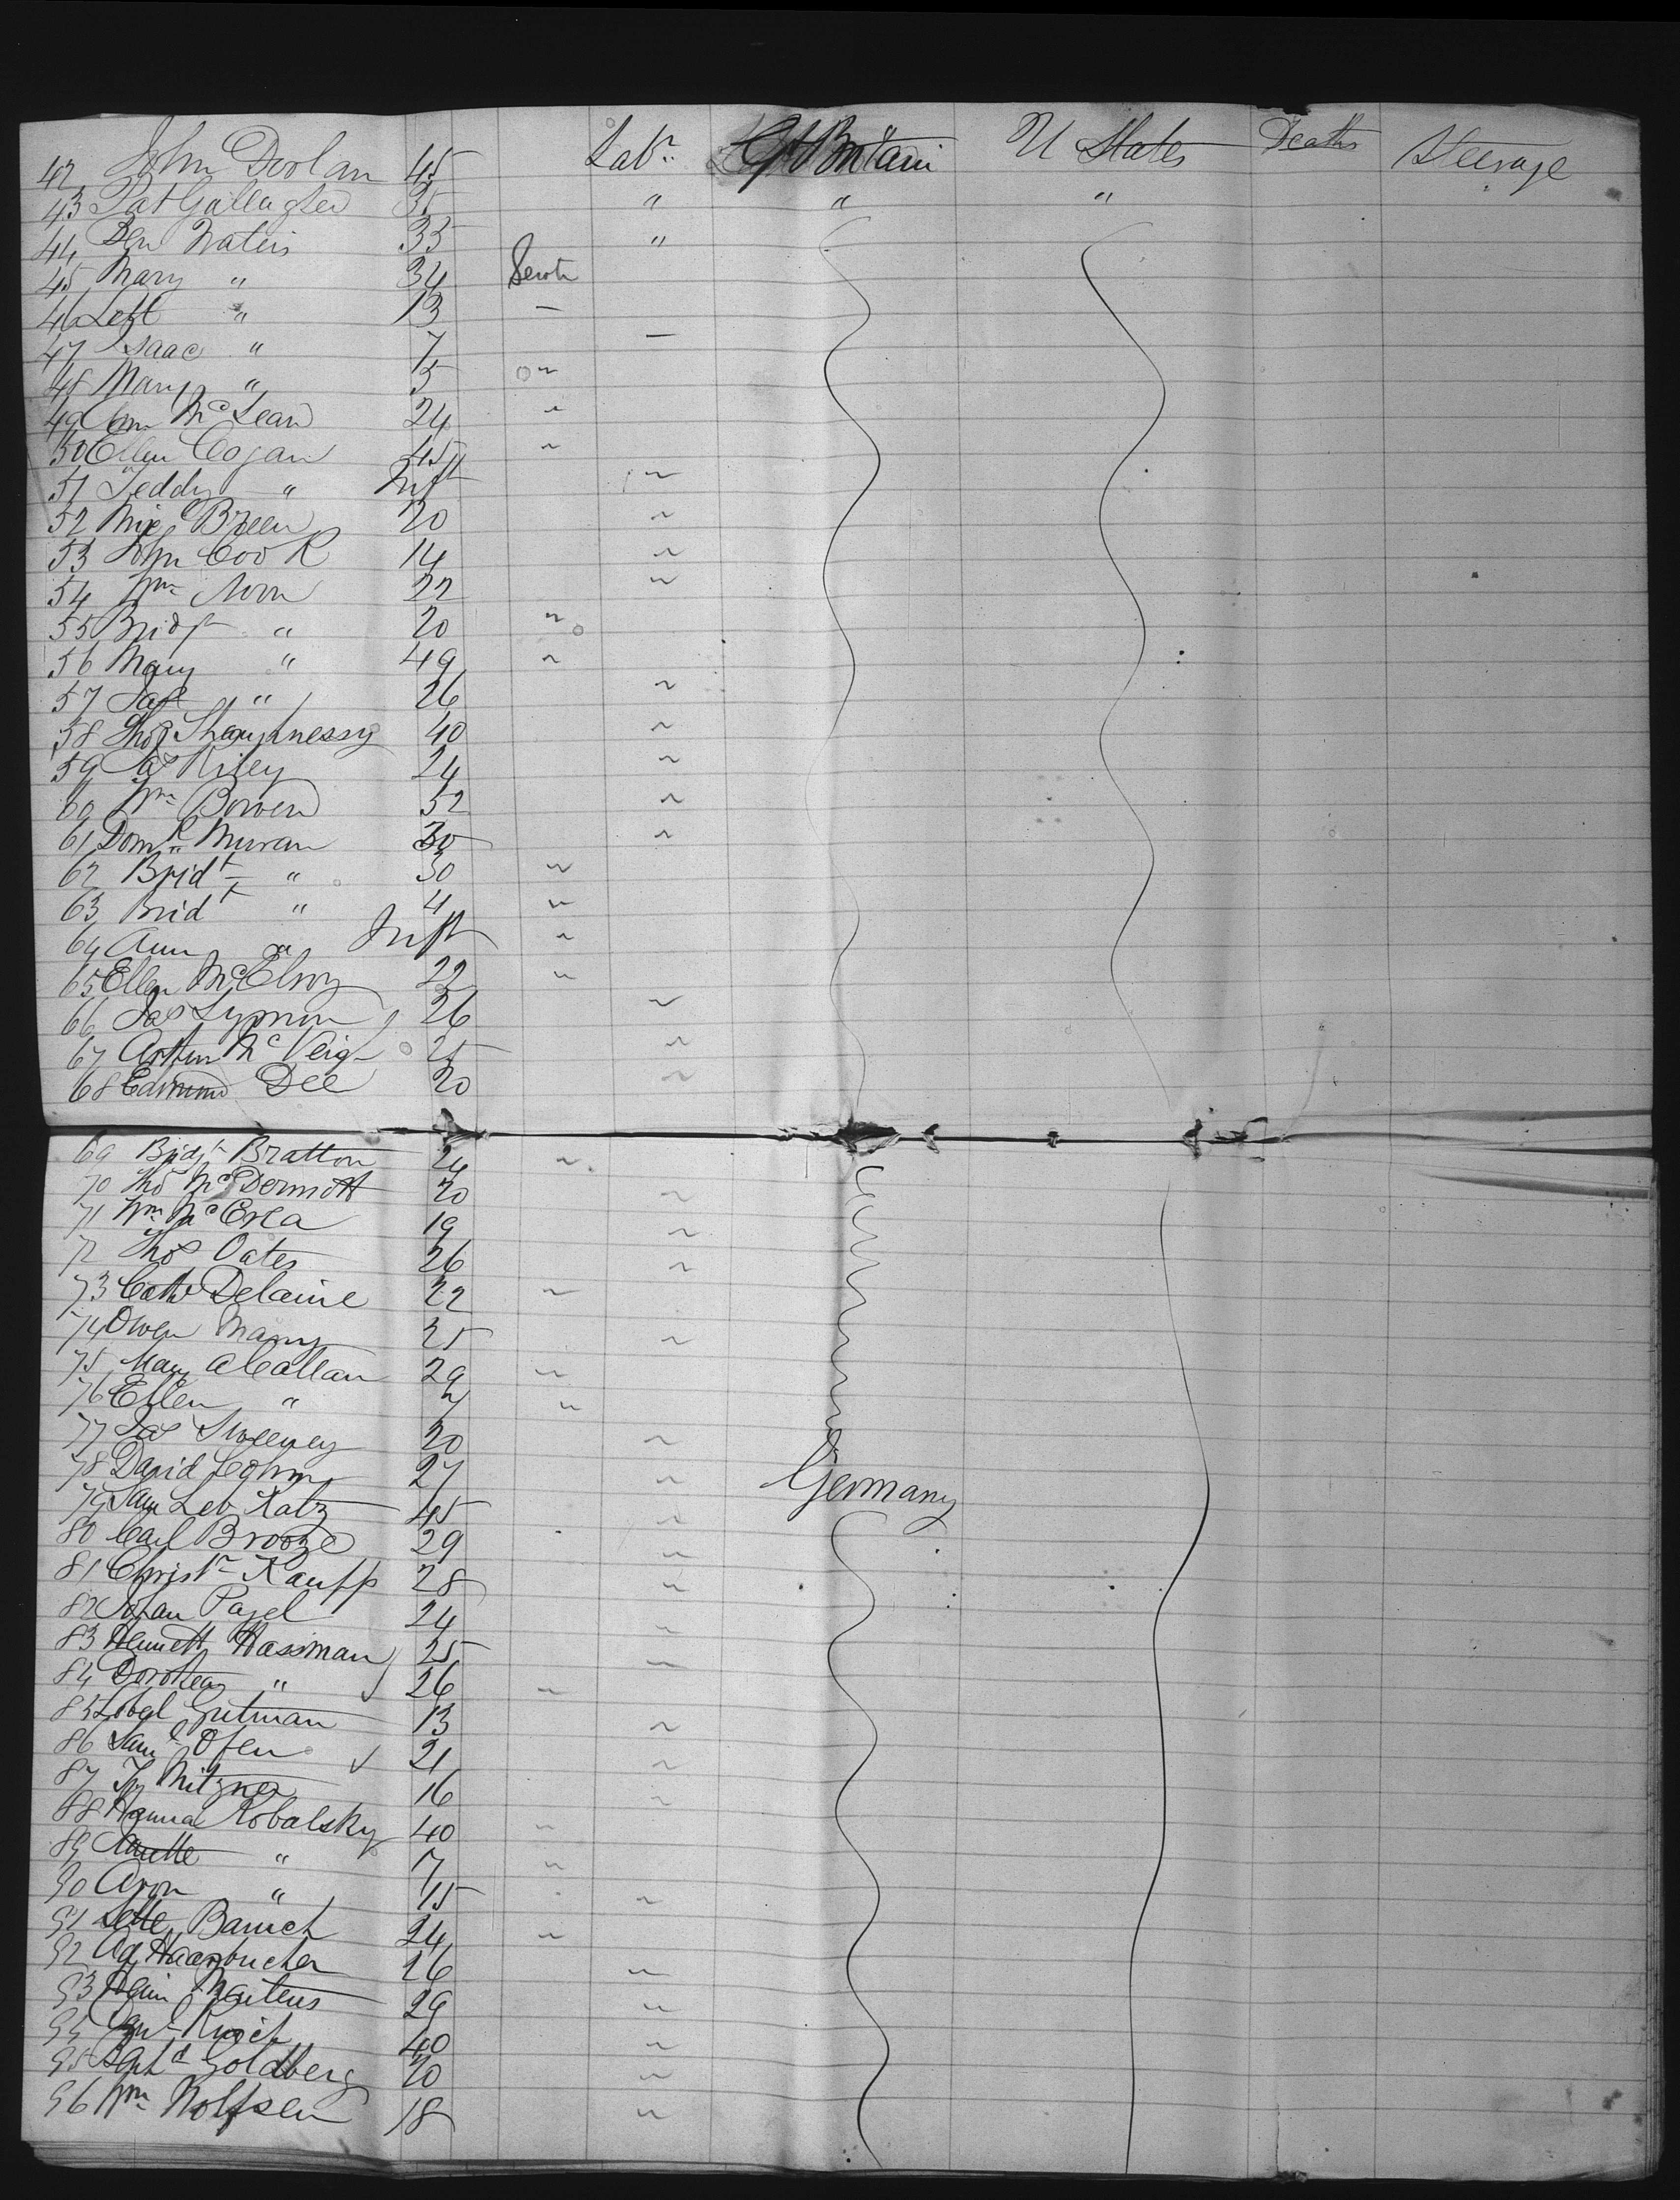 42 John Doolan 45 Labr. Gt Britain U States Deaths Steerage
43 Pat Gallagher 35 " " "
44 Ben Waters 35 "
45 Mary " 34 Servt
46 " 13 —
47 Isaac " 7 —
48 Mary " 5 ~
49 Ann McLean 24 ~
50 Ellen Cogan 45 ~
51 Teddy " Inft ~
52 Micl Breen 20 ~
53 John Cook 14 ~
54 Wm Noon 22 ~
55 Bridgt " 20 ~
56 Mary " 49 ~
57 Jas " 26 ~
58 Thos Shaughnessy 40 ~
59 Jas Riley 24 ~
60 Wm Bowen 52 ~
61 Domk Muran 30 ~
62 Bridt " 30 ~
63 Bridt " 4 ~
64 Ann " Inft ~
65 Ellen McElroy 22 ~
66 Jas 26 ~
67 Arthur McVeigh 25 ~
68 Edmund Dee 20 ~
69 Bridgt Bratton 24 ~
70 Thos McDermott 20 ~
71 Wm 19 ~
72 Thos Oates 26 ~
73 Cath Delaine 22 ~
74 Owen 25 ~
75 Mary A Callan 29 ~
76 Ellen " 7 ~
77 Jas Sweeney 20 ~
78 David 27 ~ Germany
79 Leb Katz 45 ~
80 Carl Brooze 29 ~
81 Christn Kauff 28 ~
82 Johan Pagel 24 ~
83 Hassman 25 ~
84 Dorothea " 26 ~
85 Gutman 13 ~
86 Saml Ofen 21 ~
87 Mitzner 16 ~
88 Hanna Kobalsky 40 ~
89 " 7 ~
90 Aron " 15 ~
91 Jette Baruch 24 ~
92 Ad Haarbucher 26 ~
93 Martens 29 ~
94 40 ~
95 Goldberg 20 ~
96 Wm Wolfsen 18 ~